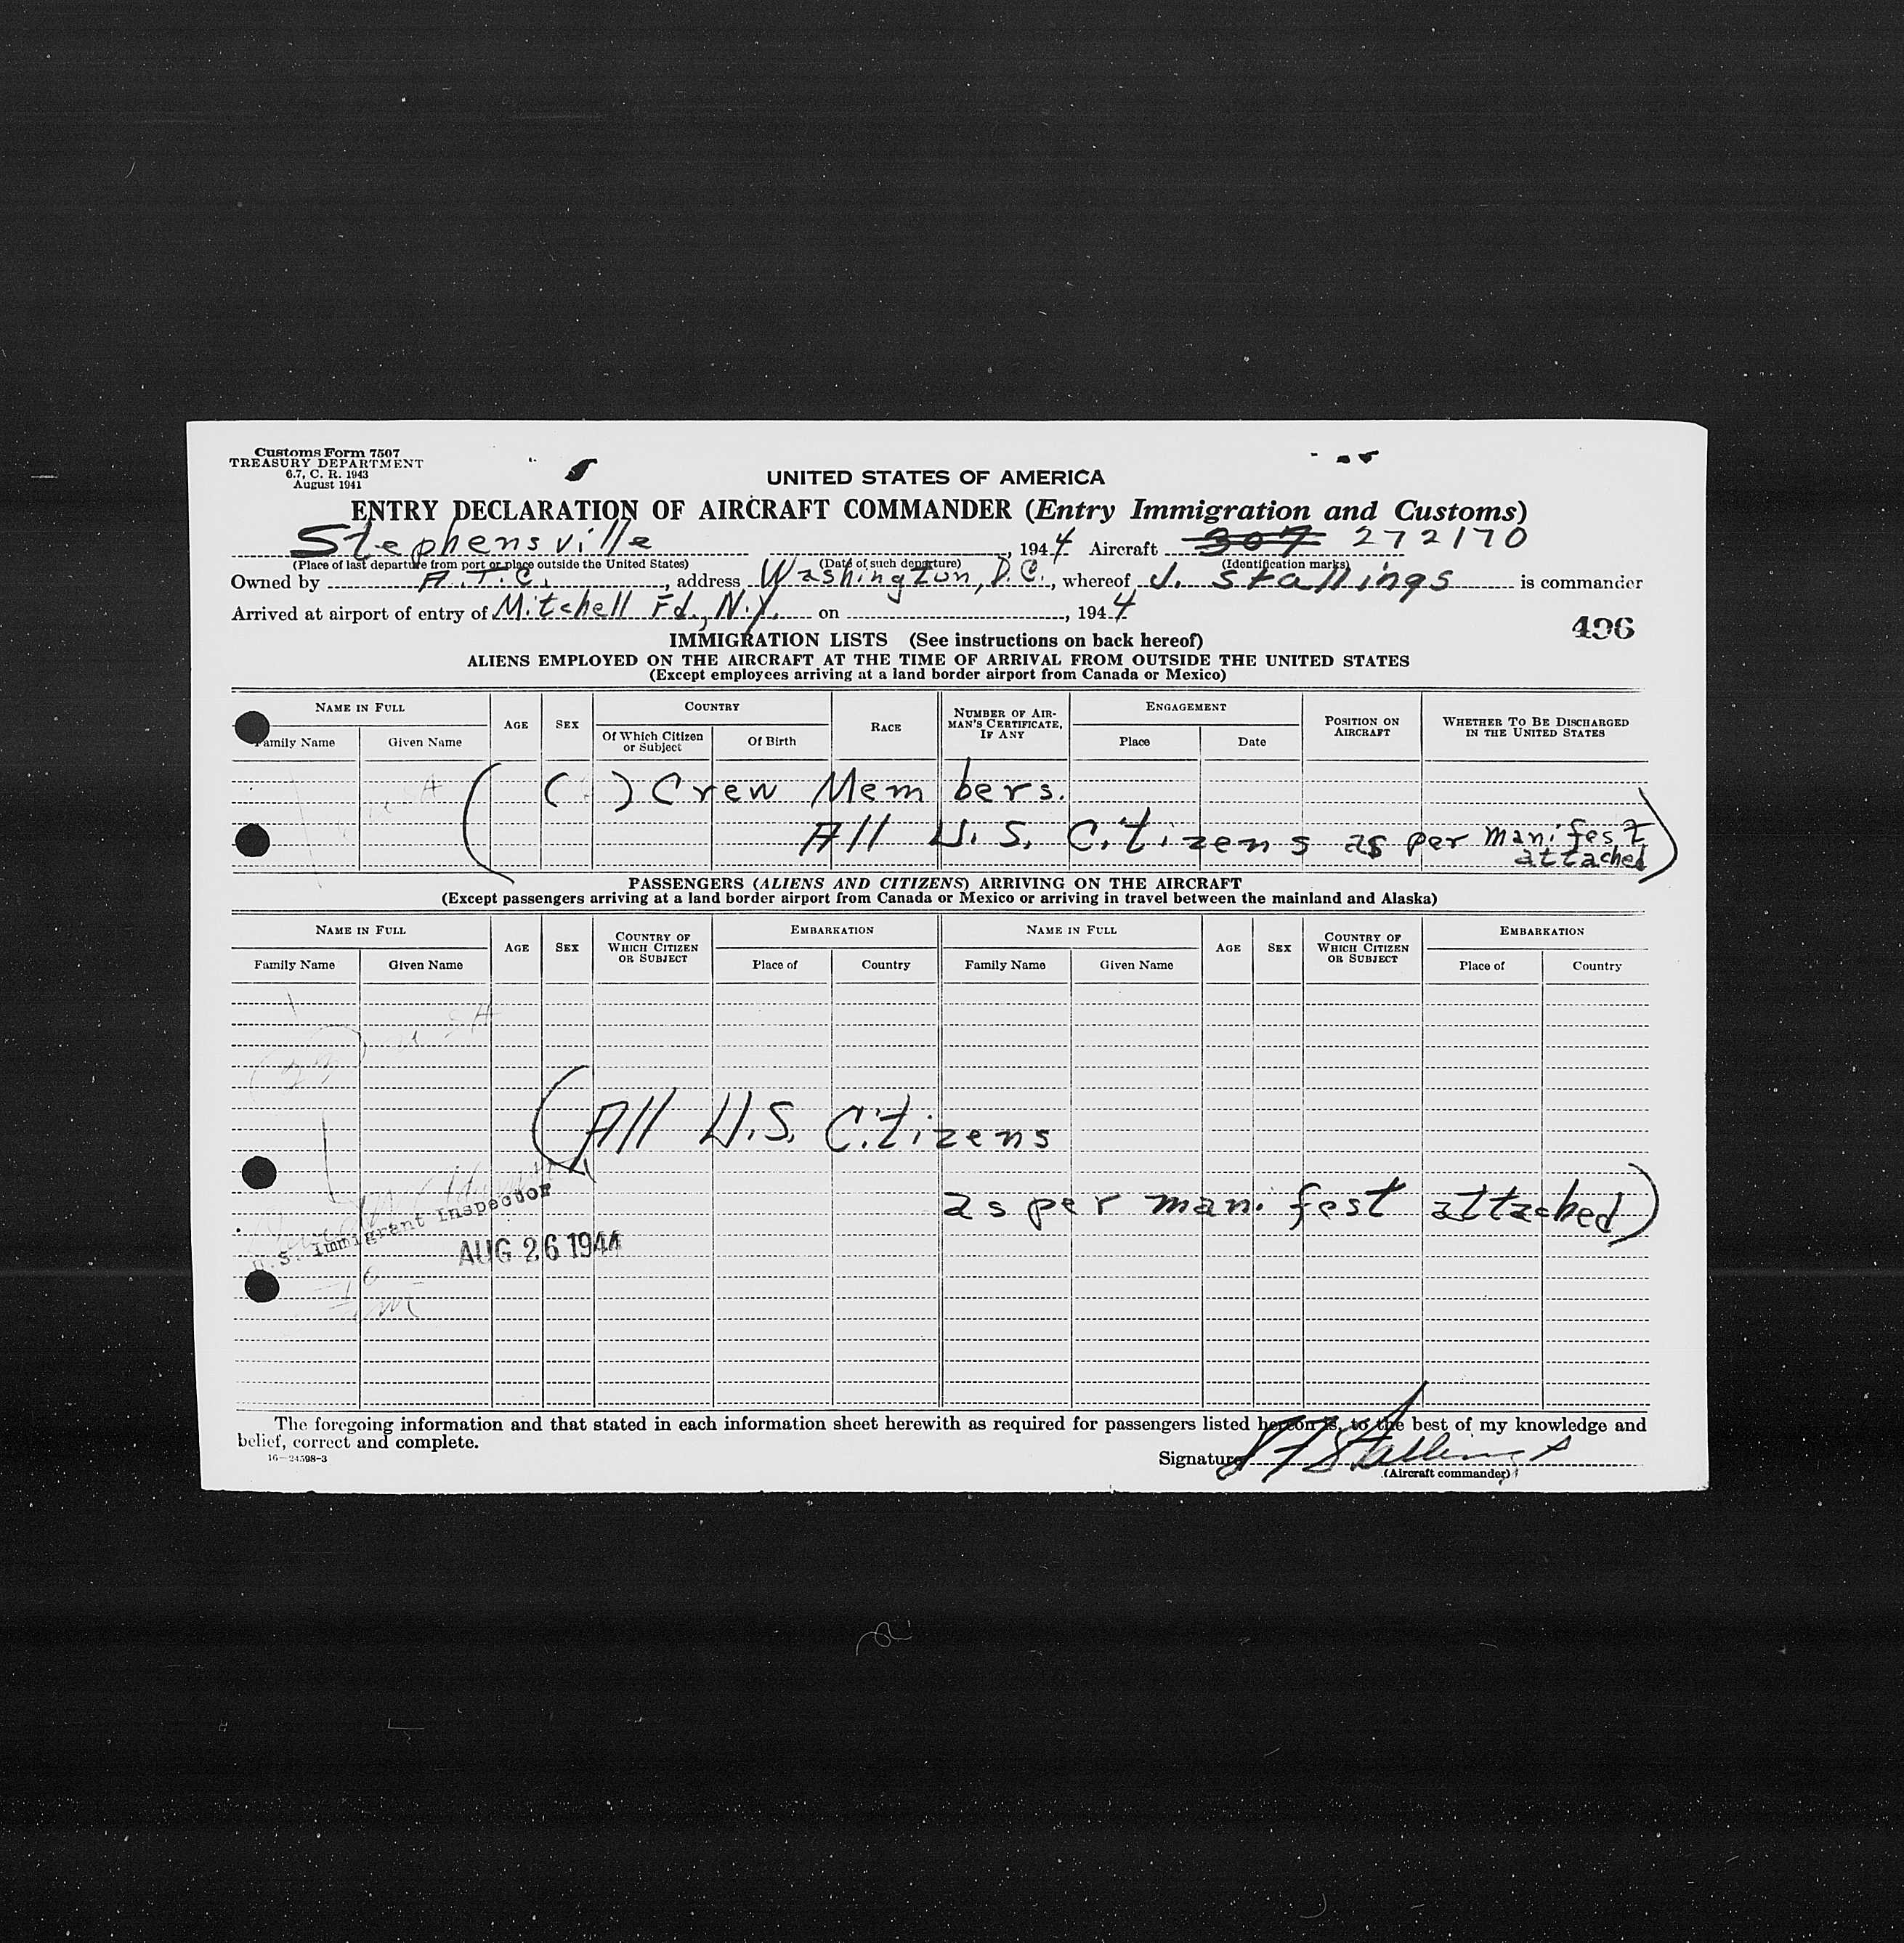 Customs Form 7507
TREASURY DEPARTMENT
6.7, C. R. 1943
August 1941
UNITED STATES OF AMERICA
ENTRY DECLARATION OF AIRCRAFT COMMANDER (Entry Immigration and Customs)
Stephensville , 1944 Aircraft 307 272170
(Place of last departure from port or place outside the United States) (Date of such departure) (Identification marks)
Owned by A.T.C. , address Washington, D.C., whereof J. Stallings is commander
Arrived at airport of entry of Mitchell Fd., N.Y. on , 1944
496
IMMIGRATION LISTS (See instructions on back hereof)
ALIENS EMPLOYED ON THE AIRCRAFT AT THE TIME OF ARRIVAL FROM OUTSIDE THE UNITED STATES
(Except employees arriving at a land border airport from Canada or Mexico)
NAME IN FULL AGE SEX COUNTRY RACE NUMBER OF AIRMAN'S CERTIFICATE, IF ANY ENGAGEMENT POSITION ON AIRCRAFT WHETHER TO BE DISCHARGED IN THE UNITED STATES
Family Name Given Name Of Which Citizen or Subject Of Birth Place Date
( ( ) Crew Members.
All U.S. Citizens as per manifest
attached)
PASSENGERS (ALIENS AND CITIZENS) ARRIVING ON THE AIRCRAFT
(Except passengers arriving at a land border airport from Canada or Mexico or arriving in travel between the mainland and Alaska)
NAME IN FULL AGE SEX COUNTRY OF WHICH CITIZEN OR SUBJECT EMBARKATION NAME IN FULL AGE SEX COUNTRY OF WHICH CITIZEN OR SUBJECT EMBARKATION
Family Name Given Name Place of Country Family Name Given Name Place of Country
(All U.S. Citizens
as per manifest attached)
U.S. Immigrant Inspector
AUG 26 1944
The foregoing information and that stated in each information sheet herewith as required for passengers listed hereon is, to the best of my knowledge and
belief, correct and complete.
16—24598-3
Signature Stallings
(Aircraft commander)